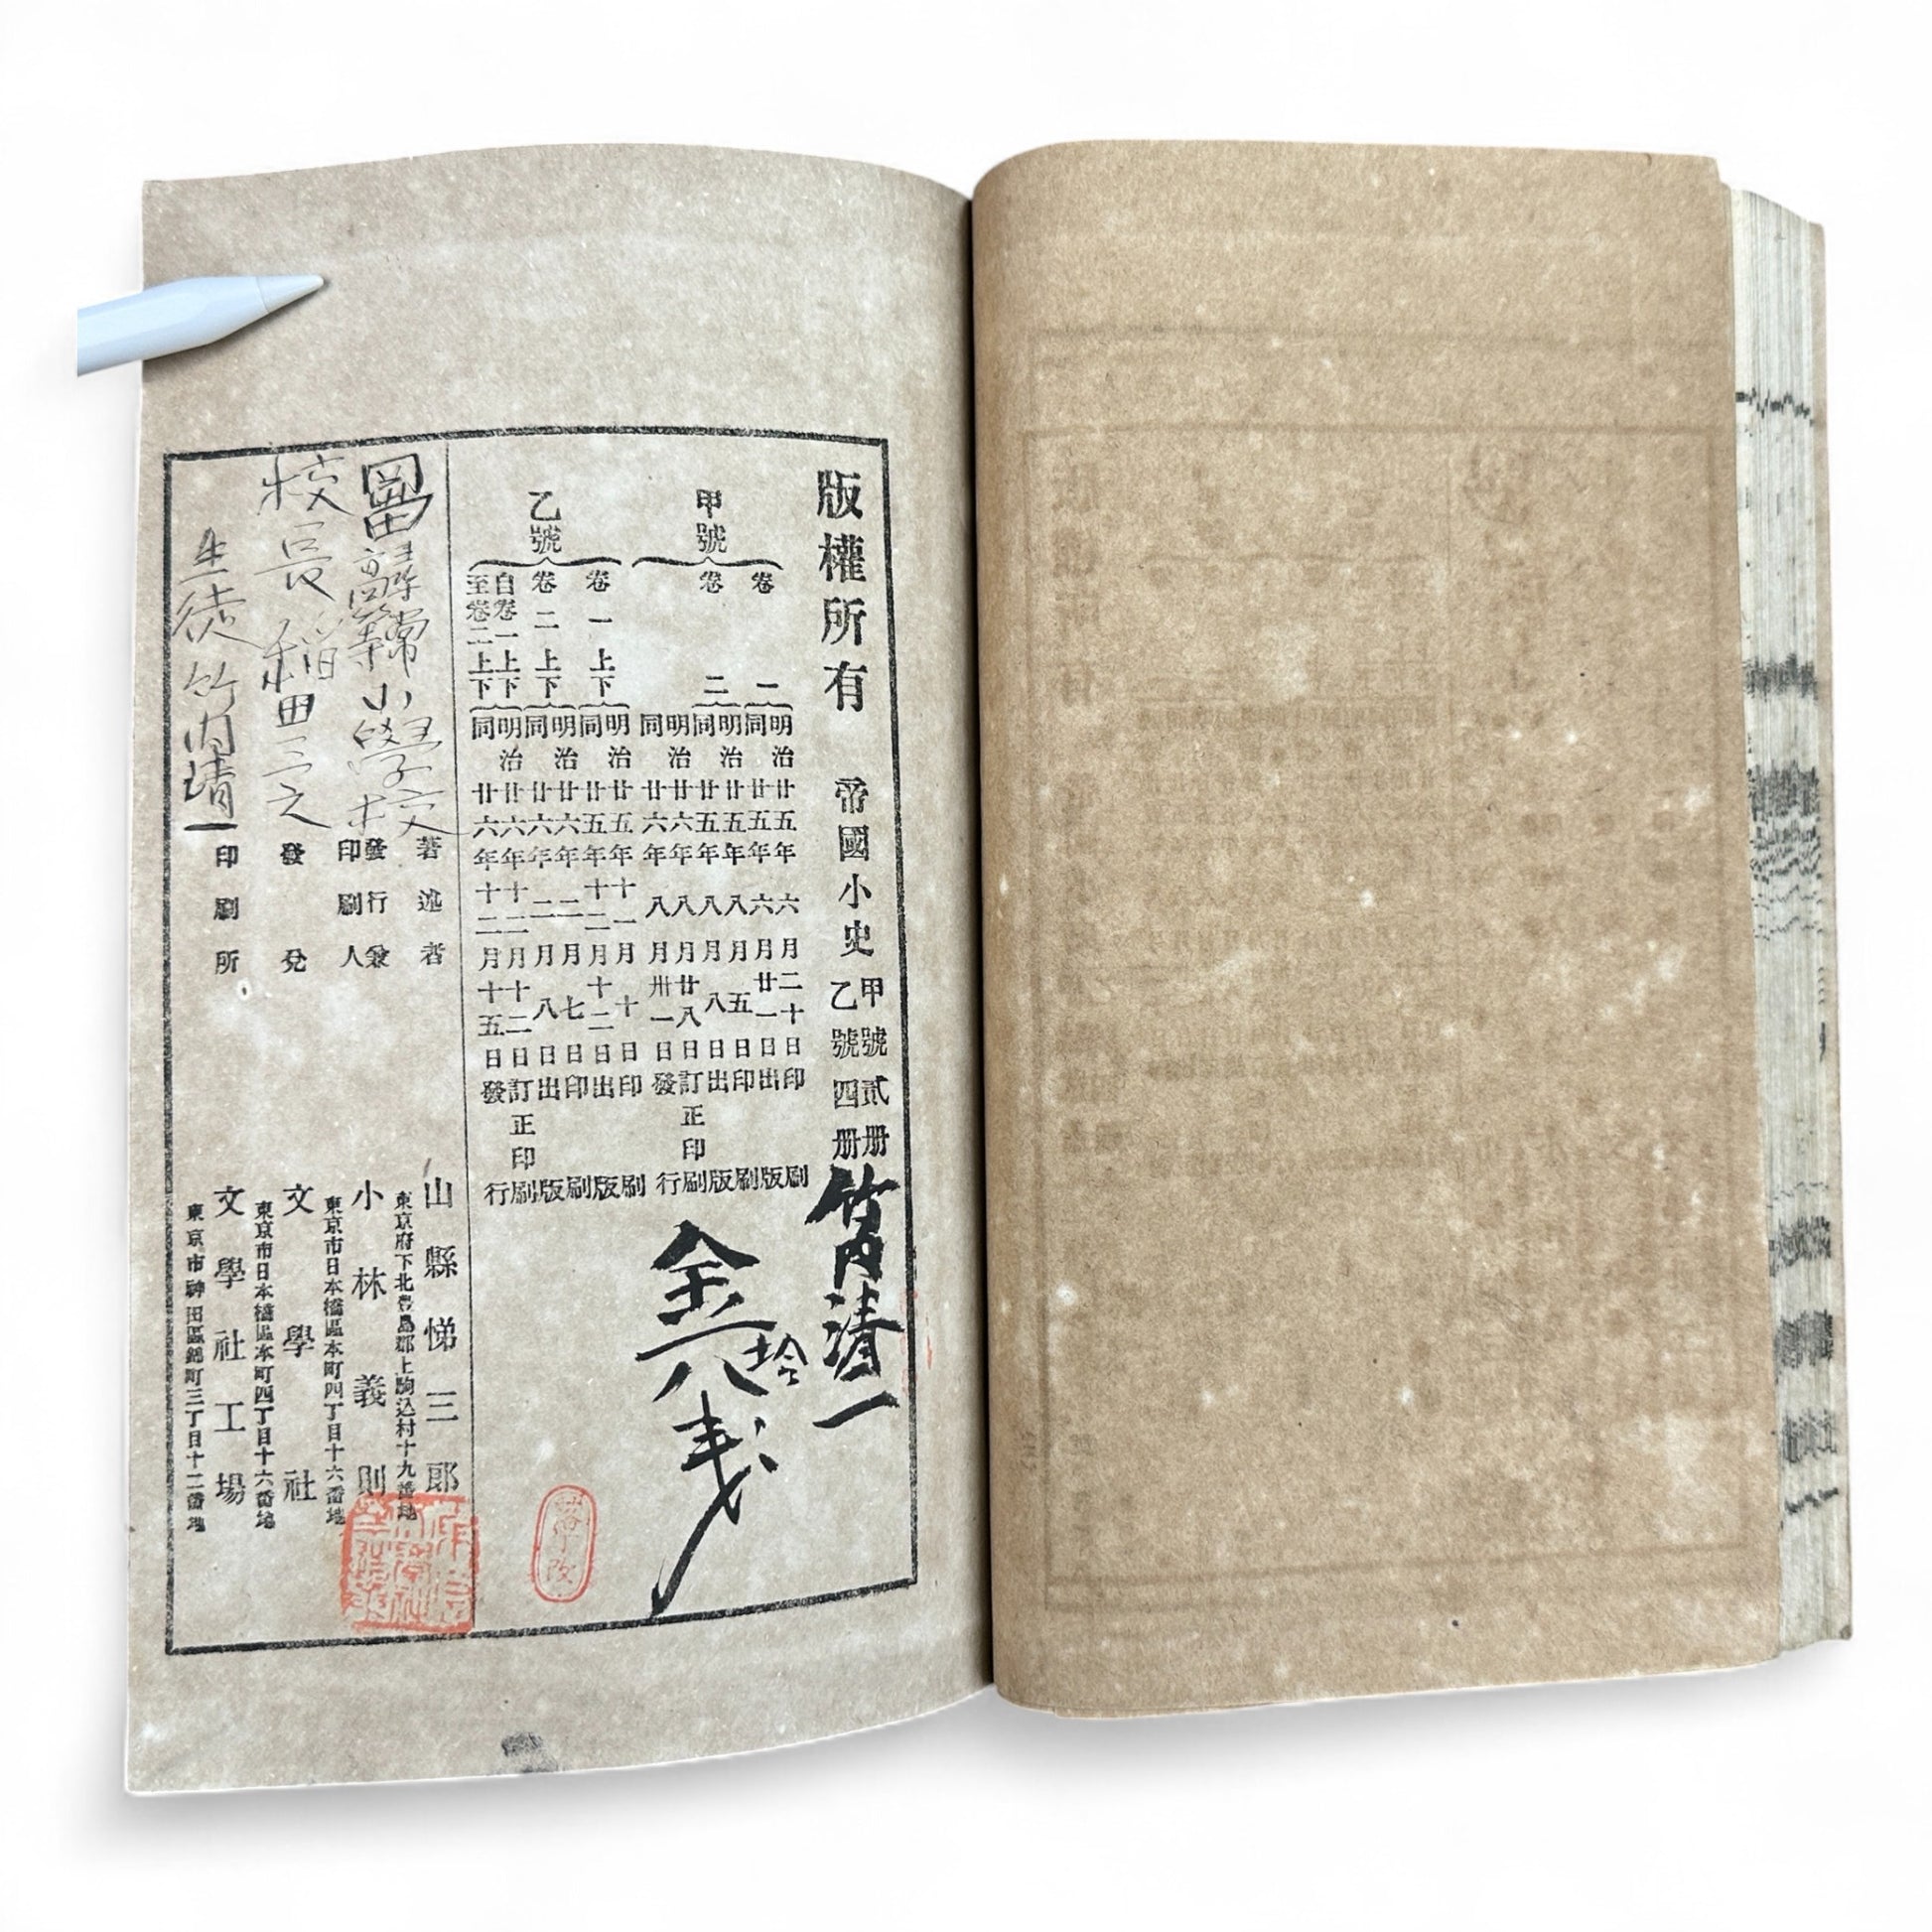 版權所有 帝國小史 甲號貳册
乙號四册
竹内清一
甲號
卷一 明治廿五年六月二十日印刷
同廿五年六月廿一日出版
卷二 明治廿五年八月五日印刷
同廿五年八月八日出版
明治廿六年八月廿八日訂正印刷
同廿六年八月卅一日發行
金
乙號
卷一上下 明治廿五年十一月十日印刷
同廿五年十二月十二日出版
卷二上下 明治廿六年二月七日印刷
同廿六年二月八日出版
自卷一上下 明治廿六年十二月十二日訂正印刷
至卷二上下 同廿六年十二月十五日發行
尋常
高等
小學校
校長稻田三之
生徒竹内清一
著述者 山縣悌三郎
東京府下北豊島郡上駒込村十九番地
發行兼
印刷人 小林義則
東京市日本橋區本町四丁目十六番地
發兌 文學社
東京市日本橋區本町四丁目十六番地
印刷所 文學社工場
東京市神田區錦町三丁目十二番地